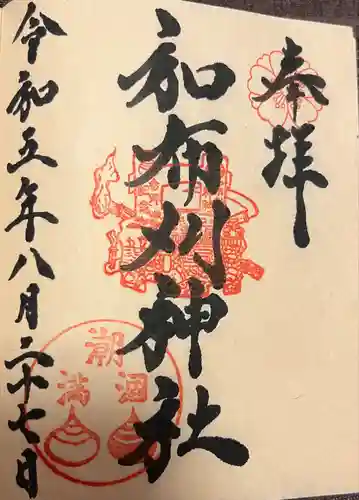 奉拝
和布刈神社
令和五年八月二十七日
潮
涸
満